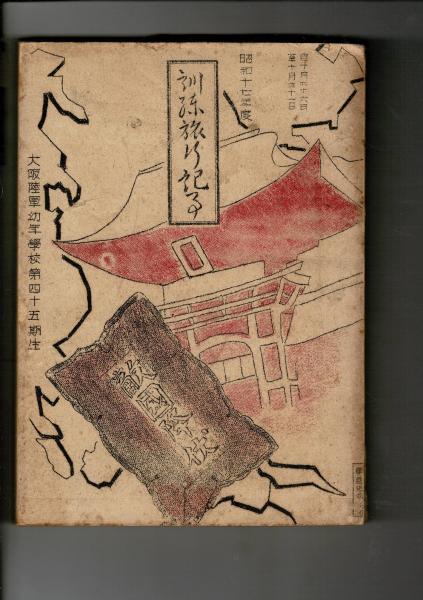 自十月二十六日
至十月三十一日
昭和十七年度
訓練旅行記事
大阪陸軍幼年學校第四十五期生
敵國降伏